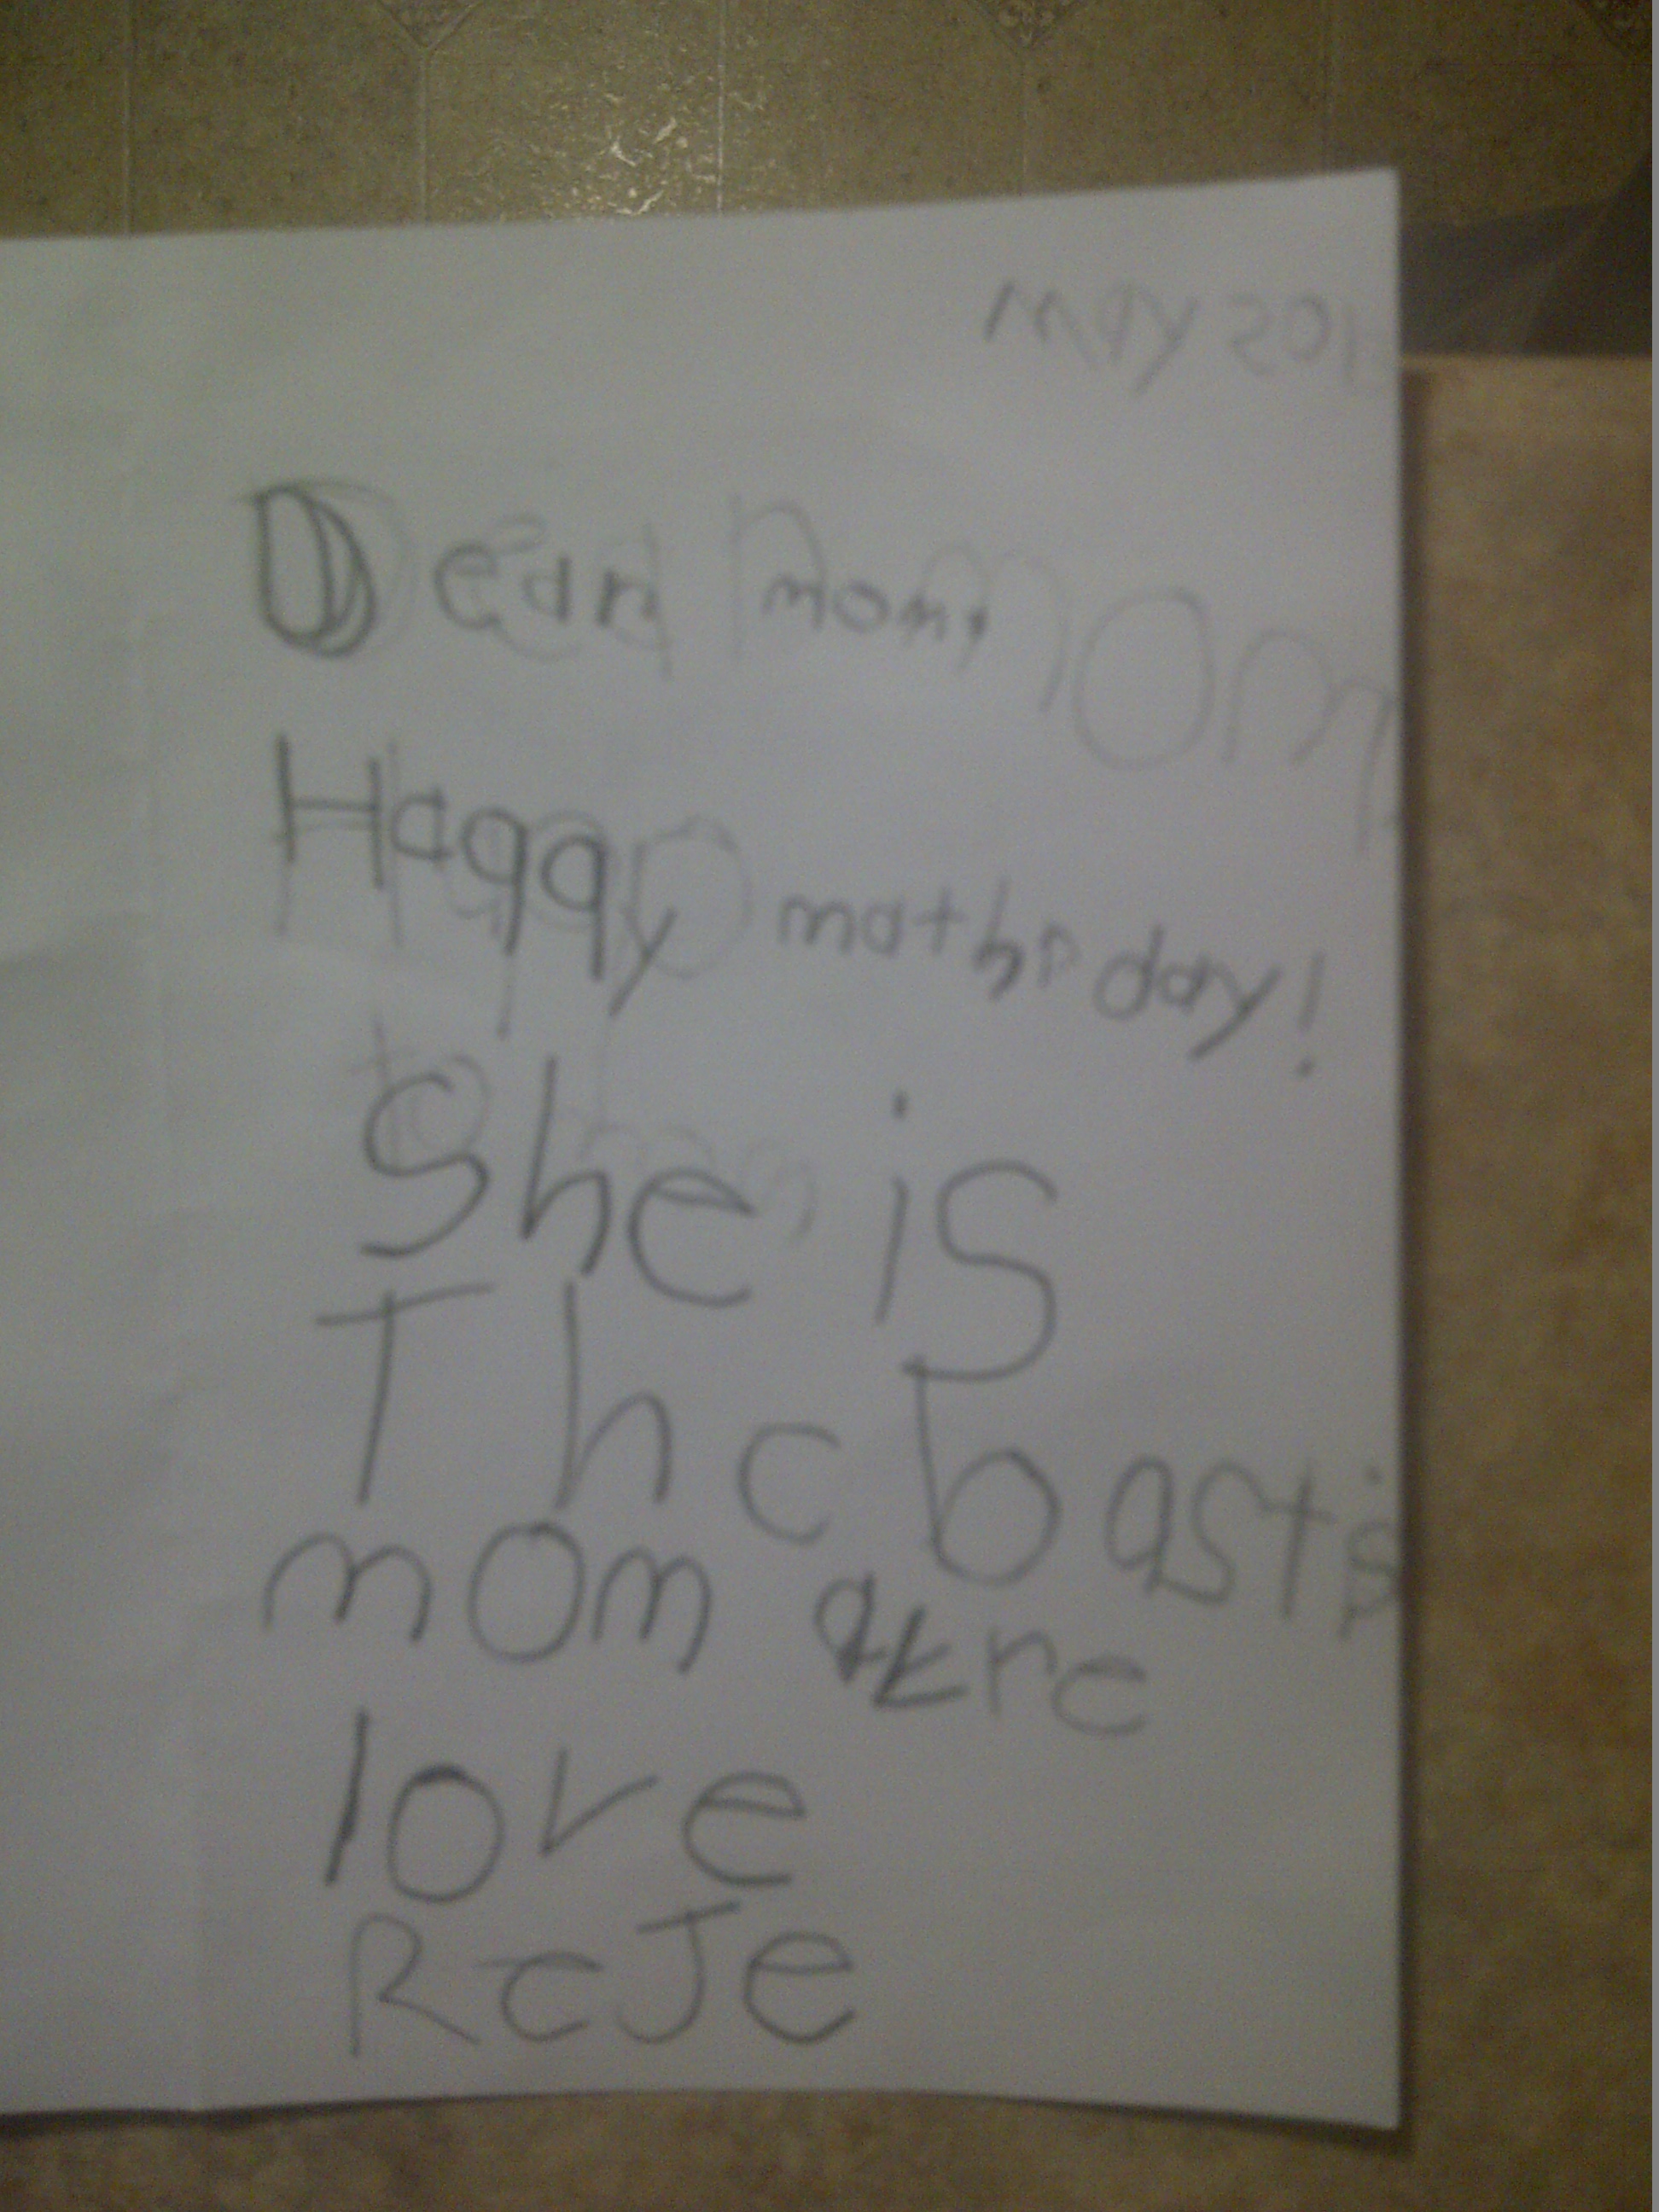 MAY 201
Dear mom,
Haqqy mathr day!
She is
The bast
mom
love
ReJe